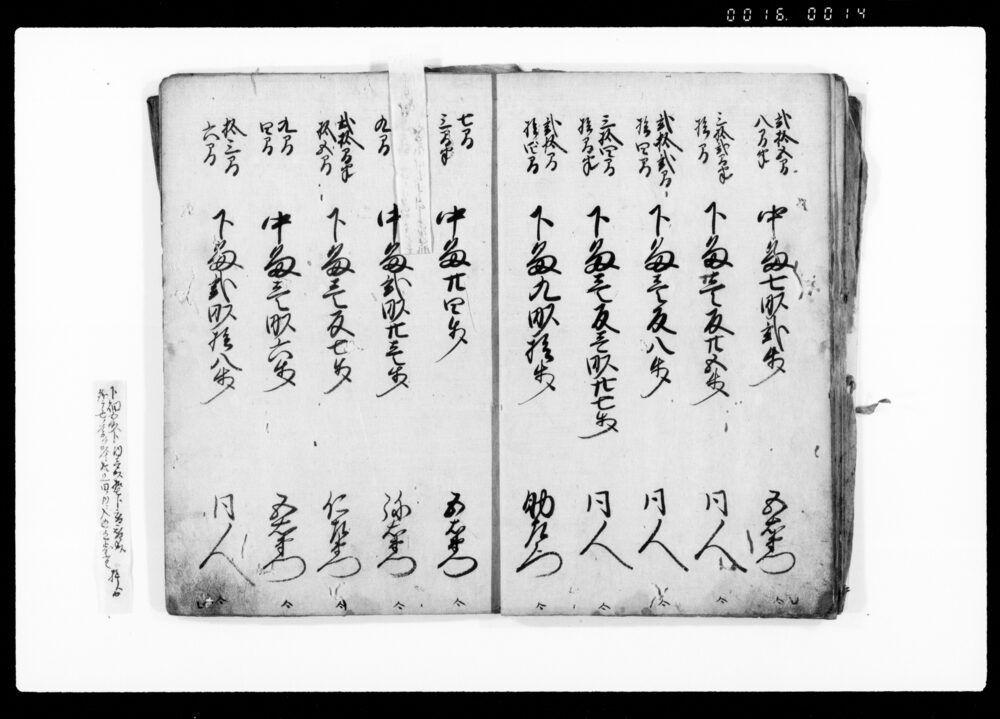 0016. 0014
弐拾五間
八間半
中畠七畝弐歩
五右衛門
三拾弐間半
拾間
下畠壱反廿五歩
同人
弐拾弐間
拾四間
下畠壱反八歩
同人
三拾四間
拾間半
下畠壱反壱畝廿七歩
同人
弐拾間
拾四間
下畠九畝拾歩
助左衛門
七間
三間半
中畠廿四歩
五右衛門
九間
中畠弐畝廿三歩
弥右衛門
弐拾間半
拾五間
下畠壱反七歩
仁左衛門
九間
四間
中畠壱畝六歩
五右衛門
拾三間
六間
下畠弐畝拾八歩
同人